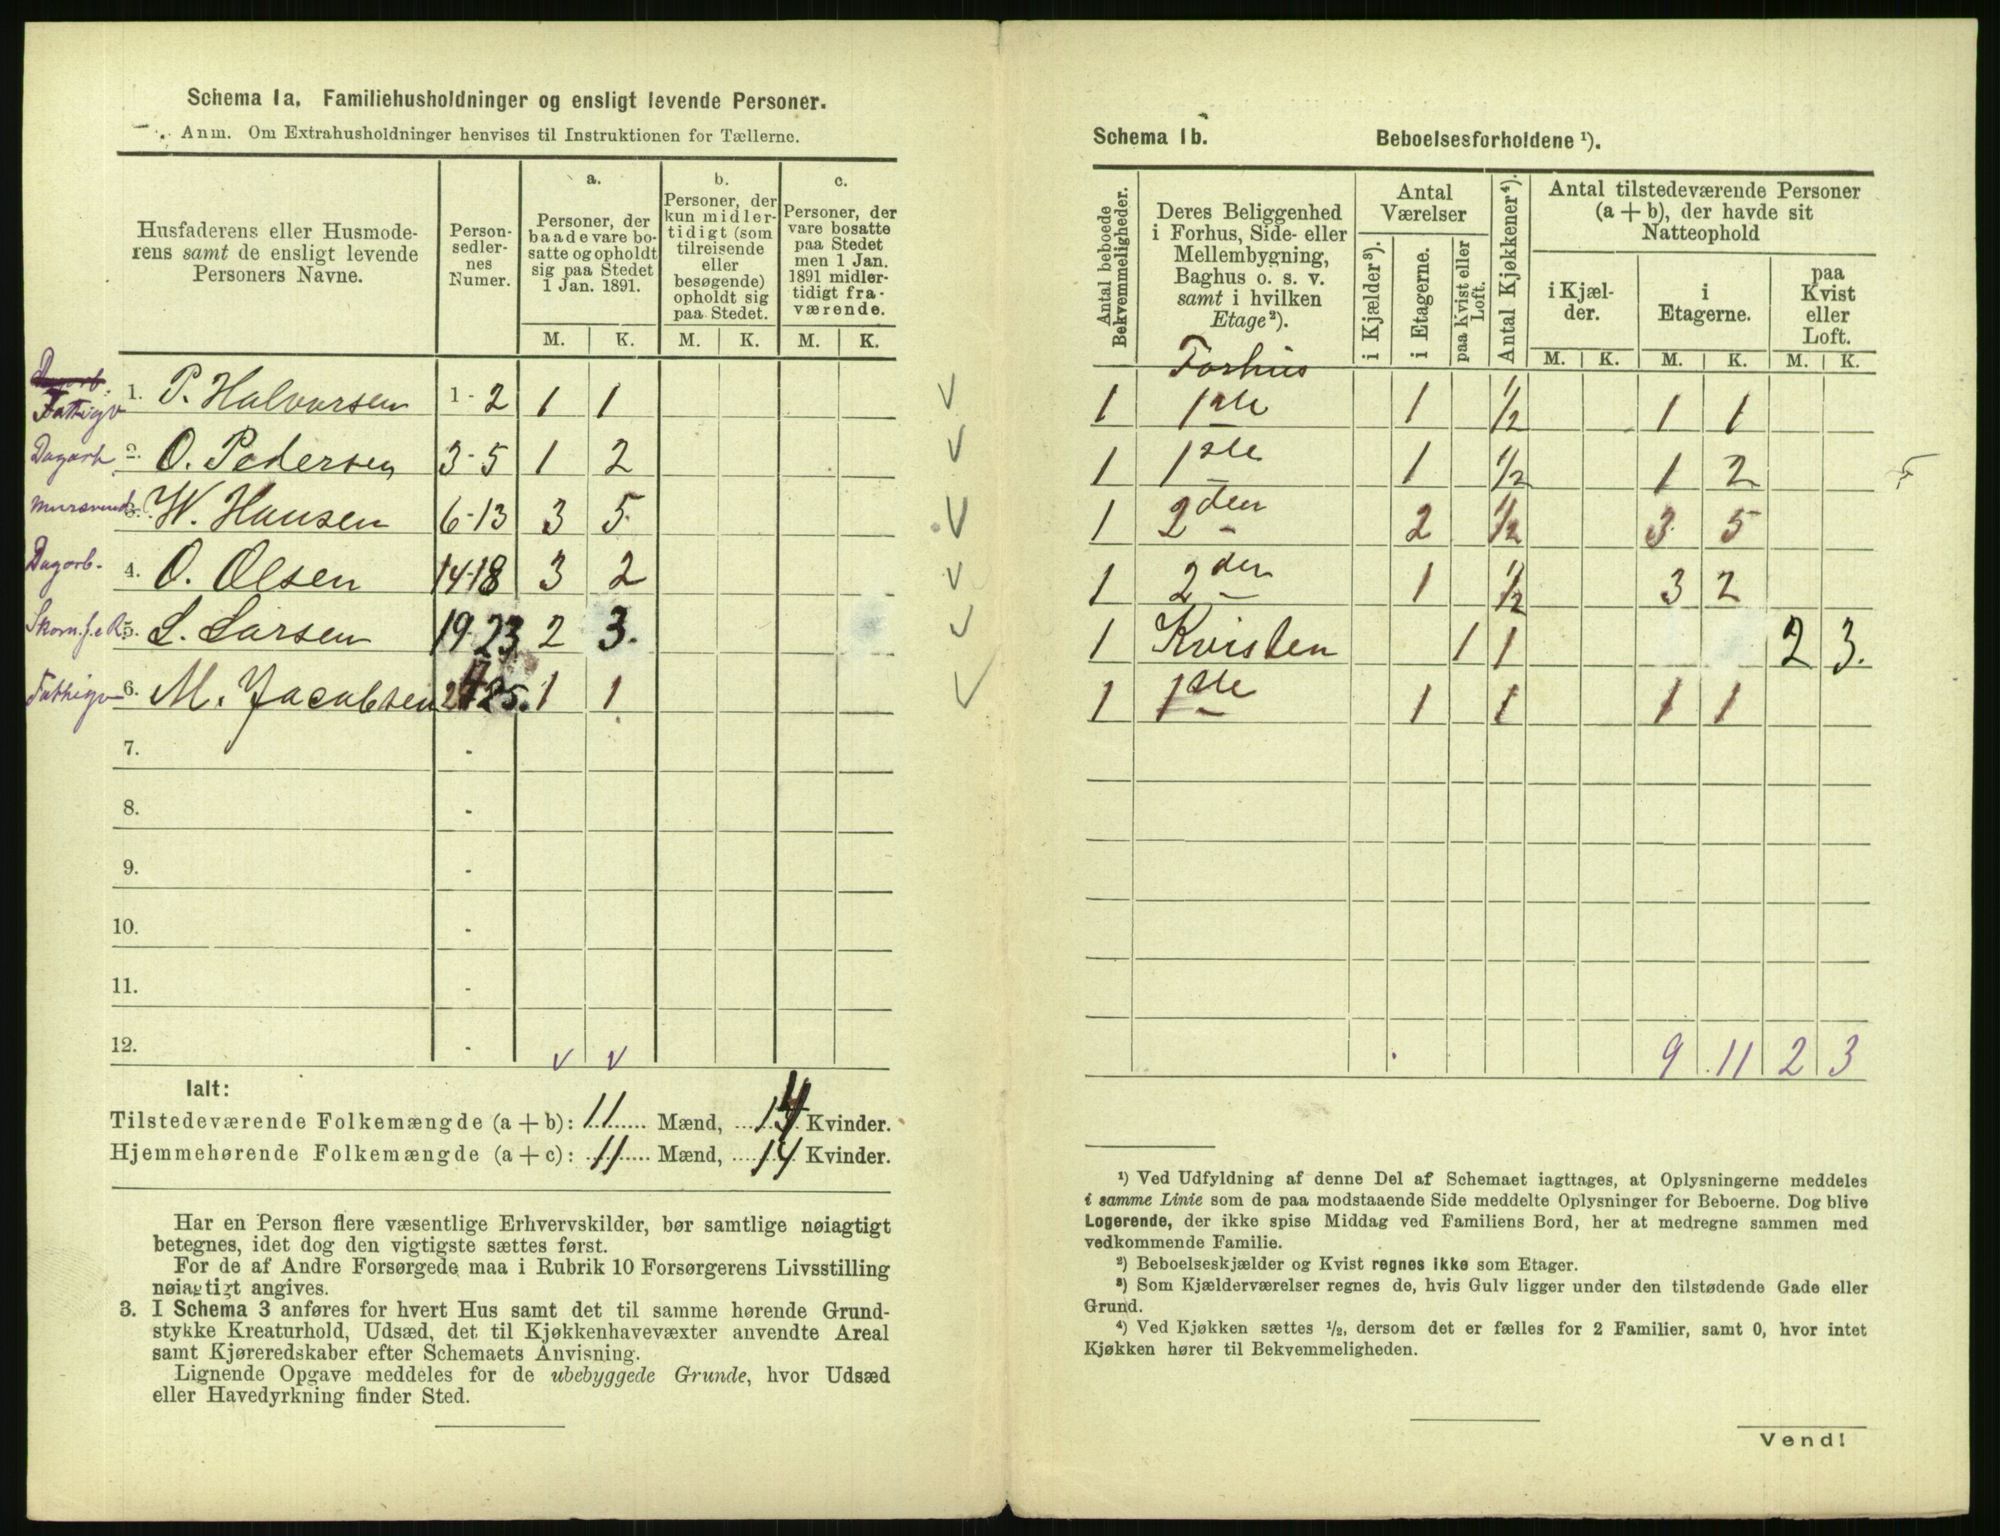 Schema 1a. Familiehusholdninger og ensligt levende Personer.
Anm. Om Extrahusholdninger henvises til Instruktionen for Tællerne.
Husfaderens eller Husmoderens samt de ensligt levende Personers Navne.
Personsedlernes Numer.
a. Personer, der baade vare bosatte og opholdt sig paa Stedet 1 Jan. 1891.
b. Personer, der kun midlertidigt (som tilreisende eller besøgende) opholdt sig paa Stedet.
c. Personer, der vare bosatte paa Stedet men 1 Jan. 1891 midlertidigt fraværende.
M. K. M. K. M. K.
Fattigv 1. P. Halvorsen 1-2 1 1
Dagarb 2. O. Pedersen 3-5 1 2
Mursvend 3. W. Hansen 6-13 3 5
Dagarb. 4. O. Olsen 14-18 3 2
5. L. Larsen 19-23 2 3.
Fattigv 6. M. Jacobsen 24-25. 1 1
7. -
8. -
9. -
10. -
11. -
12. -
Ialt:
Tilstedeværende Folkemængde (a + b): 11 Mænd, 14 Kvinder.
Hjemmehørende Folkemængde (a + c): 11 Mænd, 14 Kvinder.
Har en Person flere væsentlige Erhvervskilder, bør samtlige nøiagtigt
betegnes, idet dog den vigtigste sættes først.
For de af Andre Forsørgede maa i Rubrik 10 Forsørgerens Livsstilling
nøiagtigt angives.
3. I Schema 3 anføres for hvert Hus samt det til samme hørende Grund-
stykke Kreaturhold, Udsæd, det til Kjøkkenhavevæxter anvendte Areal
samt Kjøreredskaber efter Schemaets Anvisning.
Lignende Opgave meddeles for de ubebyggede Grunde, hvor Udsæd
eller Havedyrkning finder Sted.
Schema 1b. Beboelsesforholdene ¹).
Antal beboede Bekvemmeligheder.
Deres Beliggenhed i Forhus, Side- eller Mellembygning, Baghus o. s. v. samt i hvilken Etage²).
Antal Værelser
i Kjælder³).
i Etagerne.
paa Kvist eller Loft.
Antal Kjøkkener⁴).
Antal tilstedeværende Personer (a + b), der havde sit Natteophold
i Kjælder.
i Etagerne.
paa Kvist eller Loft.
M. K. M. K. M. K.
Forhus
1 1ste 1 1/2 1 1
1 1ste 1 1/2 1 2
1 2den 2 1/2 3 5
1 2den 1 1/2 3 2
1 Kvisten 1 1 2 3.
1 1ste 1 1 1 1
9 11 2 3
¹) Ved Udfyldning af denne Del af Schemaet iagttages, at Oplysningerne meddeles
i samme Linie som de paa modstaaende Side meddelte Oplysninger for Beboerne. Dog blive
Logerende, der ikke spise Middag ved Familiens Bord, her at medregne sammen med
vedkommende Familie.
²) Beboelseskjælder og Kvist regnes ikke som Etager.
³) Som Kjælderværelser regnes de, hvis Gulv ligger under den tilstødende Gade eller
Grund.
⁴) Ved Kjøkken sættes ½, dersom det er fælles for 2 Familier, samt 0, hvor intet
Kjøkken hører til Bekvemmeligheden.
Vend!